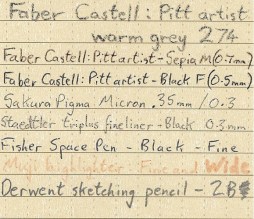 Faber Castell: Pitt artist
warm grey 274
Faber Castell: Pitt artist - Sepia M(0.7mm)
Faber Castell: Pitt artist - Black F(0.5mm)
Sakura Pigma Micron .35mm / 0.3
Staedtler triplus fineliner - Black 0.3mm
Fisher Space Pen - Black - Fine
Muji highlighter - Wide
Derwent sketching pencil - 2B